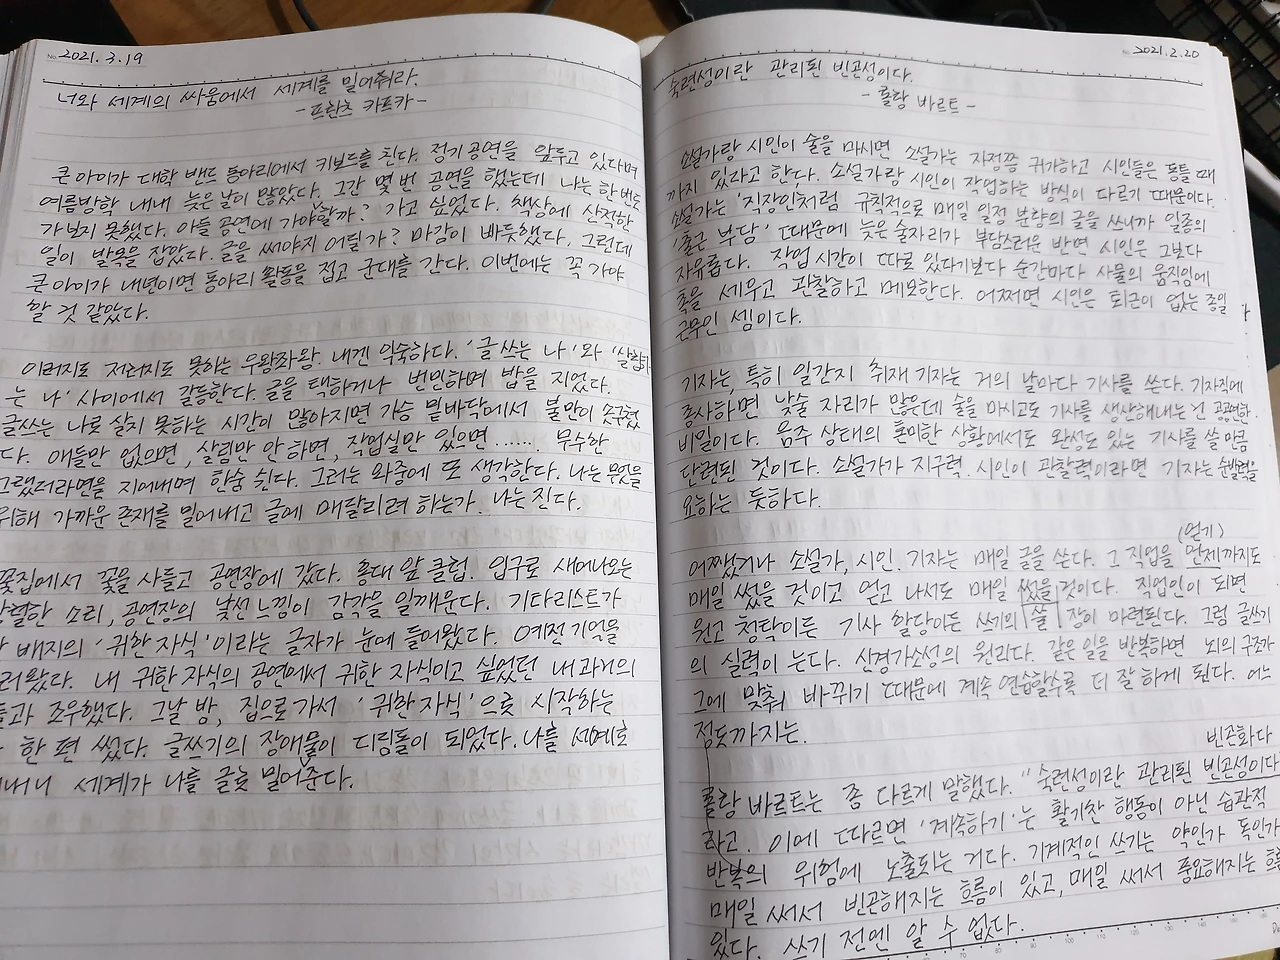 2021.3.19
너와 세계의 싸움에서 세계를 밀어줘라.
- 프란츠 카프카 -
큰 아이가 대학 밴드 동아리에서 키보드를 친다. 정기공연을 앞두고 있다며
여름방학 내내 늦은 날이 많았다. 그간 몇 번 공연을 했는데 나는 한 번도
가보지 못했다. 아들 공연에 가야할까? 가고 싶었다. 책상에 산적한
일이 발목을 잡았다. 글을 써야지 어딜가? 마감이 빠듯했다. 그런데
큰 아이가 내년이면 동아리 활동을 접고 군대를 간다. 이번에는 꼭 가야
할 것 같았다.
이러지도 저러지도 못하는 우왕좌왕. 내겐 익숙하다. '글 쓰는 나'와 '살림하
는 나' 사이에서 갈등한다. 글을 택하거나 번민하며 밥을 지었다.
글쓰는 나로 살지 못하는 시간이 많아지면 가슴 밑바닥에서 불만이 솟구쳤
다. 애들만 없으면, 살림만 안 하면, 작업실만 있으면...... 무수한
그랬더라면을 지어내며 한숨 쉰다. 그러는 와중에 또 생각한다. 나는 무엇을
위해 가까운 존재를 밀어내고 글에 매달리려 하는가. 나는 진다.
꽃집에서 꽃을 사들고 공연장에 갔다. 홍대 앞 클럽. 입구로 새어나오는
강렬한 소리, 공연장의 낯선 느낌이 감각을 일깨운다. 기타리스트가
배지의 '귀한 자식'이라는 글자가 눈에 들어왔다. 예전 기억을
러왔다. 내 귀한 자식의 공연에서 귀한 자식이고 싶었던 내 과거의
과 조우했다. 그날 밤, 집으로 가서 '귀한 자식'으로 시작하는
한 편 썼다. 글쓰기의 장애물이 디딤돌이 되었다. 나를 세계로
내니 세계가 나를 글로 밀어준다.
2021.2.20
숙련성이란 관리된 빈곤성이다.
- 롤랑 바르트 -
소설가랑 시인이 술을 마시면 소설가는 자정쯤 귀가하고 시인들은 동틀 때
까지 있라고 한다. 소설가랑 시인이 작업하는 방식이 다르기 때문이다.
소설가는 '직장인처럼 규칙적으로 매일 일정 분량의 글을 쓰니까 일종의
'출근 부담' 때문에 늦은 술자리가 부담스러운 반면 시인은 그보다
자유롭다. 작업 시간이 따로 있다기보다 순간마다 사물의 움직임에
촉을 세우고 관찰하고 메모한다. 어쩌면 시인은 퇴근이 없는 종일
근무인 셈이다.
기자는, 특히 일간지 취재 기자는 거의 날마다 기사를 쓴다. 기자직에
종사하면 낮술 자리가 많은데 술을 마시고도 기사를 생산해내는 건 공공연한
비밀이다. 음주 상태의 혼미한 상황에서도 완성도 있는 기사를 쓸 만큼
단련된 것이다. 소설가가 지구력. 시인이 관찰력이라면 기자는 순발력을
요하는 듯하다.
(얻기)
어쨌거나 소설가, 시인, 기자는 매일 글을 쓴다. 그 직업을 언제까지도
매일 썼을 것이고 얻고 나서도 매일 썼을 것이다. 직업인이 되면
원고 청탁이든 기사 할당이든 쓰기의 쓸 장이 마련된다. 그럼 글쓰기
의 실력이 는다. 신경가소성의 원리다. 같은 일을 반복하면 뇌의 구조가
그에 맞춰 바뀌기 때문에 계속 연습할수록 더 잘 하게 된다. 어느
정도까지는.
빈곤화다
롤랑 바르트는 좀 다르게 말했다. "숙련성이란 관리된 빈곤성이다
라고. 이에 따르면 '계속하기'는 활기찬 행동이 아닌 습관적
반복의 위험에 노출되는 거다. 기계적인 쓰기는 약인가 독인가
매일 써서 빈곤해지는 흐름이 있고, 매일 써서 풍요해지는 흐름
있다. 쓰기 전엔 알 수 없다.